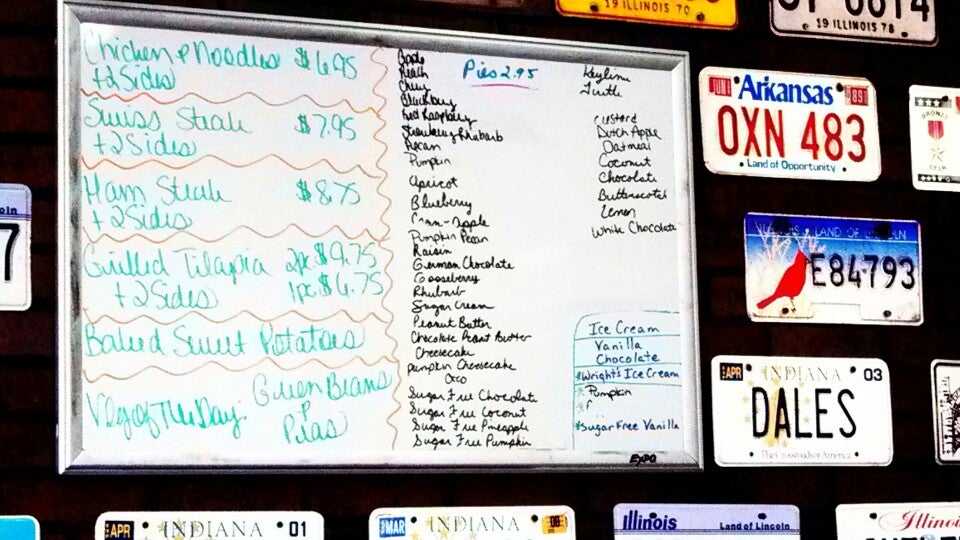 19 ILLINOIS 70
19 ILLINOIS 78
Chicken & Noodles $6.95
+2 Sides
Swiss Steak $7.95
+2 Sides
Ham Steak $8.75
+2 Sides
Grilled Tilapia 2pc $9.75
+2 Sides 1pc $6.75
Baked Sweet Potatoes
Veg of The Day. Green Beans
&
Peas
Pies 2.95
Apple
Peach
Cherry
Blackberry
Red Raspberry
Strawberry Rhubarb
Pecan
Pumpkin
Apricot
Blueberry
Cinn-Apple
Pumpkin Pecan
Raisin
German Chocolate
Gooseberry
Rhubarb
Sugar Cream
Peanut Butter
Chocolate Peanut Butter
Cheesecake
Pumpkin Cheesecake
Oreo
Sugar Free Chocolate
Sugar Free Coconut
Sugar Free Pineapple
Sugar Free Pumpkin
Keylime
Turtle
Custard
Dutch Apple
Oatmeal
Coconut
Chocolate
Butterscotch
Lemon
White Chocolate
Ice Cream
Vanilla
Chocolate
*Wright's Ice Cream
*Pumpkin
*Sugar Free Vanilla
EXPO
JUN Arkansas 89
OXN 483
Land of Opportunity
BRONZE
STAR
LAND OF LINCOLN
E84·793
APR INDIANA 03
DALES
The Crossroads of America
7
APR INDIANA 01
MAR INDIANA 08
Illinois Land of Lincoln
Illinois